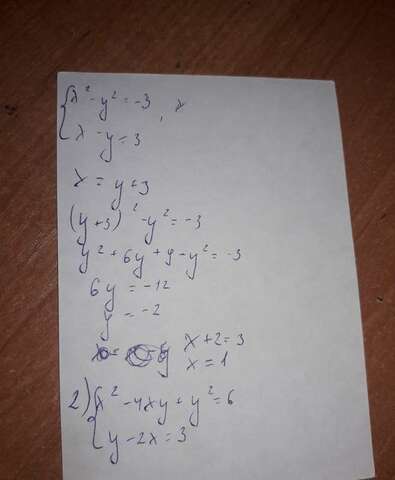 { x² - y² = -3
x - y = 3
x = y + 3
(y + 3)² - y² = -3
y² + 6y + 9 - y² = -3
6y = -12
y = -2
x + 2 = 3
x = 1
2) { x² - 4xy + y² = 6
y - 2x = 3